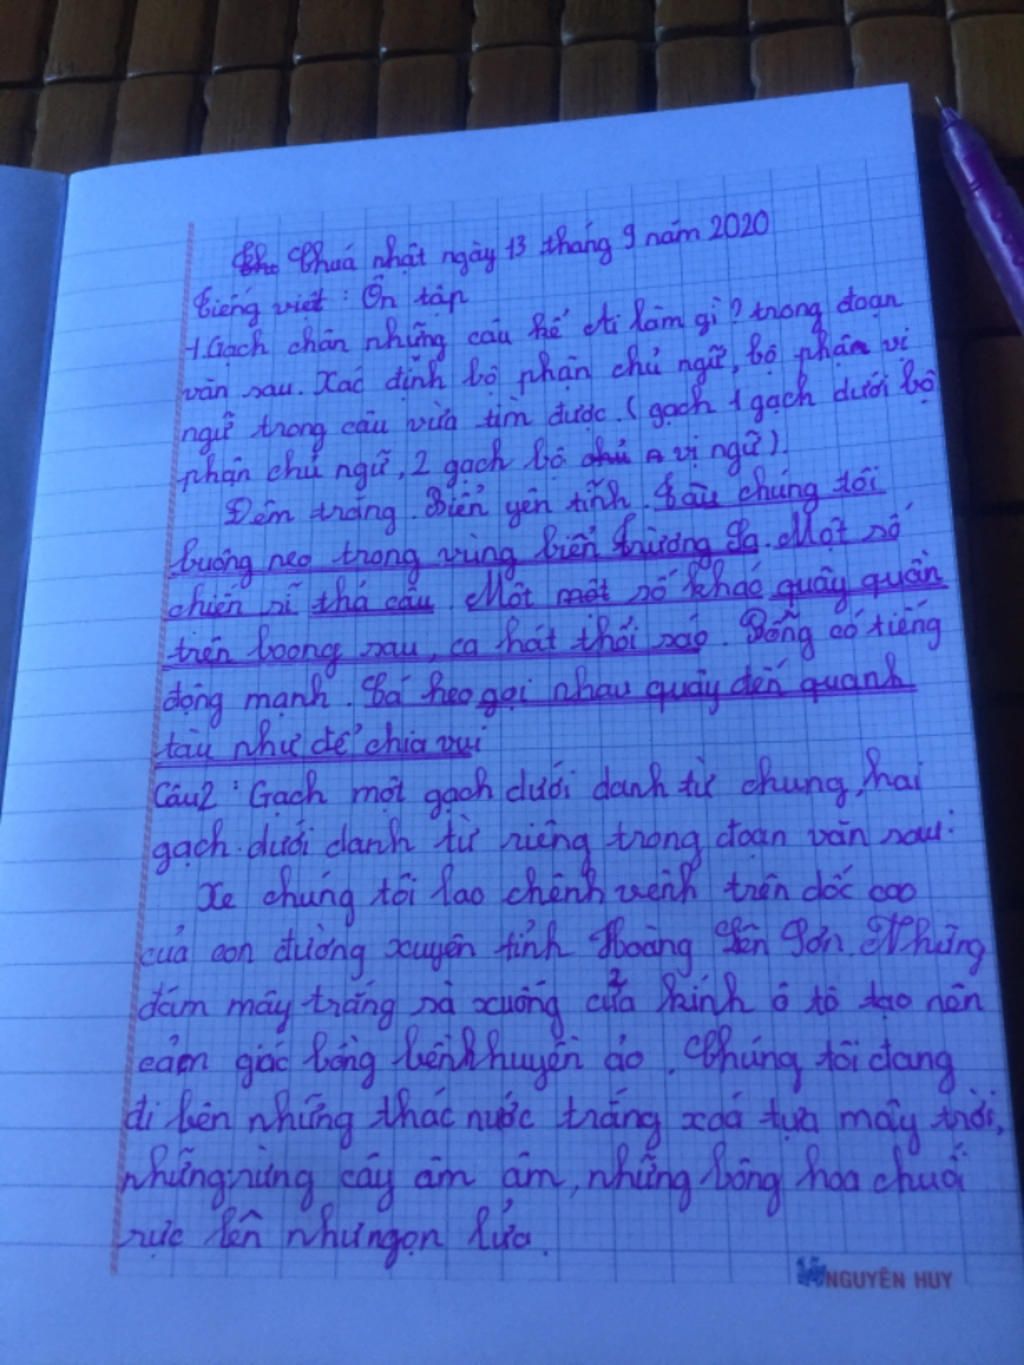 Chuá nhật ngày 13 tháng 9 năm 2020
Tiếng việt: Ôn tập
1. Gạch chân những câu kể Ai làm gì? trong đoạn
văn sau. Xác định bộ phận chủ ngữ, bộ phận vị
ngữ trong câu vừa tìm được. (gạch 1 gạch dưới bộ
phận chủ ngữ, 2 gạch bộ vị ngữ).
Đêm trăng. Biển yên tĩnh. Tàu chúng tôi
buông neo trong vùng biển Trường Sa. Một số
chiến sĩ thả câu. Một một số khác quây quần
trên boong sau, ca hát thổi sáo. Bỗng có tiếng
động mạnh. Cá heo gọi nhau quây đến quanh
tàu như để chia vui
Câu2: Gạch một gạch dưới danh từ chung, hai
gạch dưới danh từ riêng trong đoạn văn sau:
Xe chúng tôi lao chênh vênh trên dốc cao
của con đường xuyên tỉnh Hoàng Liên Sơn. Những
đám mây trắng sà xuống cửa kính ô tô tạo nên
cảm giác bồng bềnh huyền ảo. Chúng tôi đang
đi bên những thác nước trắng xoá tựa mây trời,
những rừng cây âm âm, những bông hoa chuối
rực lên như ngọn lửa.
NGUYÊN HUY